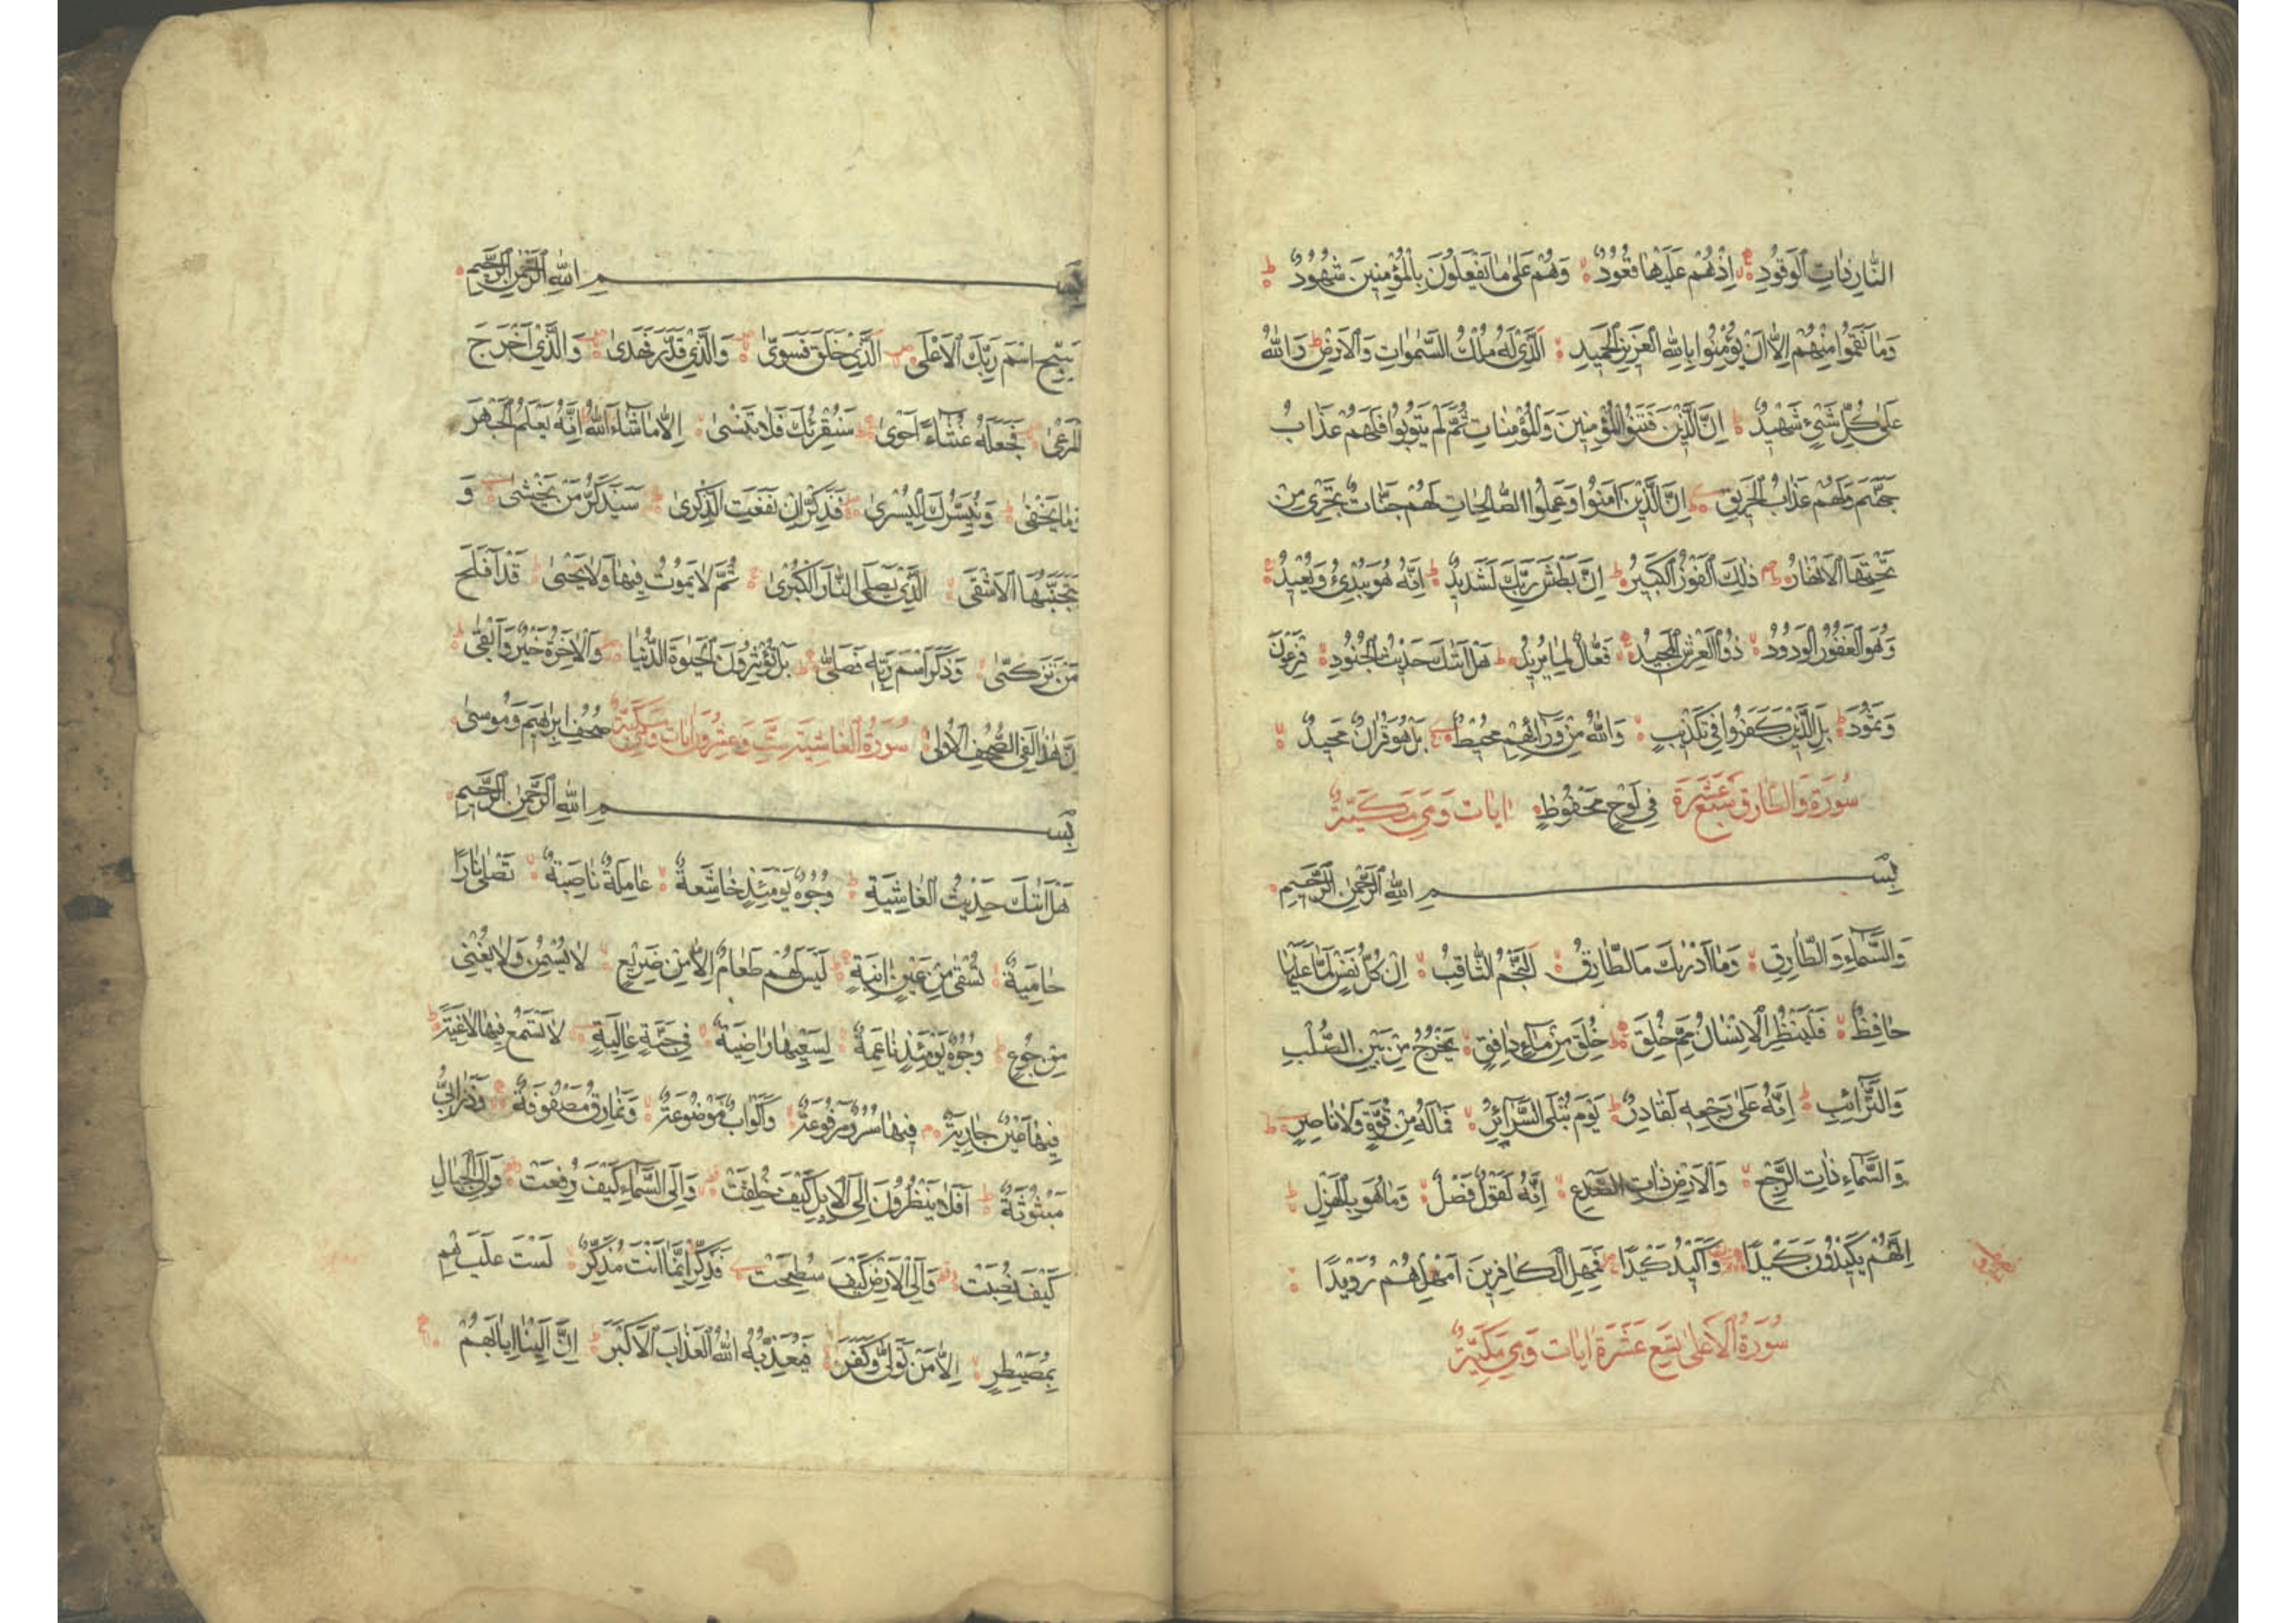 النَّارِ ذَاتِ الْوَقُودِ اِذْهُمْ عَلَيْهَا قُعُودٌ وَهُمْ عَلٰى مَا يَفْعَلُونَ بِالْمُؤْمِنِينَ شُهُودٌ
وَمَا نَقَمُوا مِنْهُمْ اِلَّا اَنْ يُؤْمِنُوا بِاللّٰهِ الْعَزِيزِ الْحَمِيدِ اَلَّذِي لَهُ مُلْكُ السَّمٰوَاتِ وَالْاَرْضِ وَاللّٰهُ
عَلٰى كُلِّ شَيْءٍ شَهِيدٌ اِنَّ الَّذِينَ فَتَنُوا الْمُؤْمِنِينَ وَالْمُؤْمِنَاتِ ثُمَّ لَمْ يَتُوبُوا فَلَهُمْ عَذَابُ
جَهَنَّمَ وَلَهُمْ عَذَابُ الْحَرِيقِ اِنَّ الَّذِينَ اٰمَنُوا وَعَمِلُوا الصَّالِحَاتِ لَهُمْ جَنَّاتٌ تَجْرِي مِنْ
تَحْتِهَا الْاَنْهَارُ ذٰلِكَ الْفَوْزُ الْكَبِيرُ اِنَّ بَطْشَ رَبِّكَ لَشَدِيدٌ اِنَّهُ هُوَ يُبْدِئُ وَيُعِيدُ
وَهُوَ الْغَفُورُ الْوَدُودُ ذُو الْعَرْشِ الْمَجِيدُ فَعَّالٌ لِمَا يُرِيدُ هَلْ اَتٰىكَ حَدِيثُ الْجُنُودِ فِرْعَوْنَ
وَثَمُودَ بَلِ الَّذِينَ كَفَرُوا فِي تَكْذِيبٍ وَاللّٰهُ مِنْ وَرَائِهِمْ مُحِيطٌ بَلْ هُوَ قُرْاٰنٌ مَجِيدٌ
سُورَةُ وَالطَّارِقِ سَبْعَ عَشَرَةَ فِي لَوْحٍ مَحْفُوظٍ اٰيَات وَهِيَ مَكِّيَّةٌ
بِسْمِ اللّٰهِ الرَّحْمٰنِ الرَّحِيمِ
وَالسَّمَاءِ وَالطَّارِقِ وَمَا اَدْرٰىكَ مَا الطَّارِقُ اَلنَّجْمُ الثَّاقِبُ اِنْ كُلُّ نَفْسٍ لَمَّا عَلَيْهَا
حَافِظٌ فَلْيَنْظُرِ الْاِنْسَانُ مِمَّ خُلِقَ خُلِقَ مِنْ مَاءٍ دَافِقٍ يَخْرُجُ مِنْ بَيْنِ الصُّلْبِ
وَالتَّرَائِبِ اِنَّهُ عَلٰى رَجْعِهِ لَقَادِرٌ يَوْمَ تُبْلَى السَّرَائِرُ فَمَا لَهُ مِنْ قُوَّةٍ وَلَا نَاصِرٍ
وَالسَّمَاءِ ذَاتِ الرَّجْعِ وَالْاَرْضِ ذَاتِ الصَّدْعِ اِنَّهُ لَقَوْلٌ فَصْلٌ وَمَا هُوَ بِالْهَزْلِ
اِنَّهُمْ يَكِيدُونَ كَيْدًا وَاَكِيدُ كَيْدًا فَمَهِّلِ الْكَافِرِينَ اَمْهِلْهُمْ رُوَيْدًا
سُورَةُ الْاَعْلٰى تِسْعَ عَشَرَةَ اٰيَات وَهِيَ مَكِّيَّةٌ
بِسْمِ اللّٰهِ الرَّحْمٰنِ الرَّحِيمِ
سَبِّحِ اسْمَ رَبِّكَ الْاَعْلَى اَلَّذِي خَلَقَ فَسَوّٰى وَالَّذِي قَدَّرَ فَهَدٰى وَالَّذِي اَخْرَجَ
الْمَرْعٰى فَجَعَلَهُ غُثَاءً اَحْوٰى سَنُقْرِئُكَ فَلَا تَنْسٰى اِلَّا مَا شَاءَ اللّٰهُ اِنَّهُ يَعْلَمُ الْجَهْرَ
وَمَا يَخْفٰى وَنُيَسِّرُكَ لِلْيُسْرٰى فَذَكِّرْ اِنْ نَفَعَتِ الذِّكْرٰى سَيَذَّكَّرُ مَنْ يَخْشٰى وَ
يَتَجَنَّبُهَا الْاَشْقَى الَّذِي يَصْلَى النَّارَ الْكُبْرٰى ثُمَّ لَا يَمُوتُ فِيهَا وَلَا يَحْيٰى قَدْ اَفْلَحَ
مَنْ تَزَكّٰى وَذَكَرَ اسْمَ رَبِّهِ فَصَلّٰى بَلْ تُؤْثِرُونَ الْحَيٰوةَ الدُّنْيَا وَالْاٰخِرَةُ خَيْرٌ وَاَبْقٰى
اِنَّ هٰذَا لَفِي الصُّحُفِ الْاُولٰى سُورَةُ الْغَاشِيَةِ سِتّ وَعِشْرُونَ اٰيَات مَكِّيَّة صُحُفِ اِبْرٰهِيمَ وَمُوسٰى
بِسْمِ اللّٰهِ الرَّحْمٰنِ الرَّحِيمِ
هَلْ اَتٰىكَ حَدِيثُ الْغَاشِيَةِ وُجُوهٌ يَوْمَئِذٍ خَاشِعَةٌ عَامِلَةٌ نَاصِبَةٌ تَصْلٰى نَارًا
حَامِيَةً تُسْقٰى مِنْ عَيْنٍ اٰنِيَةٍ لَيْسَ لَهُمْ طَعَامٌ اِلَّا مِنْ ضَرِيعٍ لَا يُسْمِنُ وَلَا يُغْنِي
مِنْ جُوعٍ وُجُوهٌ يَوْمَئِذٍ نَاعِمَةٌ لِسَعْيِهَا رَاضِيَةٌ فِي جَنَّةٍ عَالِيَةٍ لَا تَسْمَعُ فِيهَا لَاغِيَةً
فِيهَا عَيْنٌ جَارِيَةٌ فِيهَا سُرُرٌ مَرْفُوعَةٌ وَاَكْوَابٌ مَوْضُوعَةٌ وَنَمَارِقُ مَصْفُوفَةٌ وَزَرَابِيُّ
مَبْثُوثَةٌ اَفَلَا يَنْظُرُونَ اِلَى الْاِبِلِ كَيْفَ خُلِقَتْ وَاِلَى السَّمَاءِ كَيْفَ رُفِعَتْ وَاِلَى الْجِبَالِ
كَيْفَ نُصِبَتْ وَاِلَى الْاَرْضِ كَيْفَ سُطِحَتْ فَذَكِّرْ اِنَّمَا اَنْتَ مُذَكِّرٌ لَسْتَ عَلَيْهِمْ
بِمُصَيْطِرٍ اِلَّا مَنْ تَوَلّٰى وَكَفَرَ فَيُعَذِّبُهُ اللّٰهُ الْعَذَابَ الْاَكْبَرَ اِنَّ اِلَيْنَا اِيَابَهُمْ